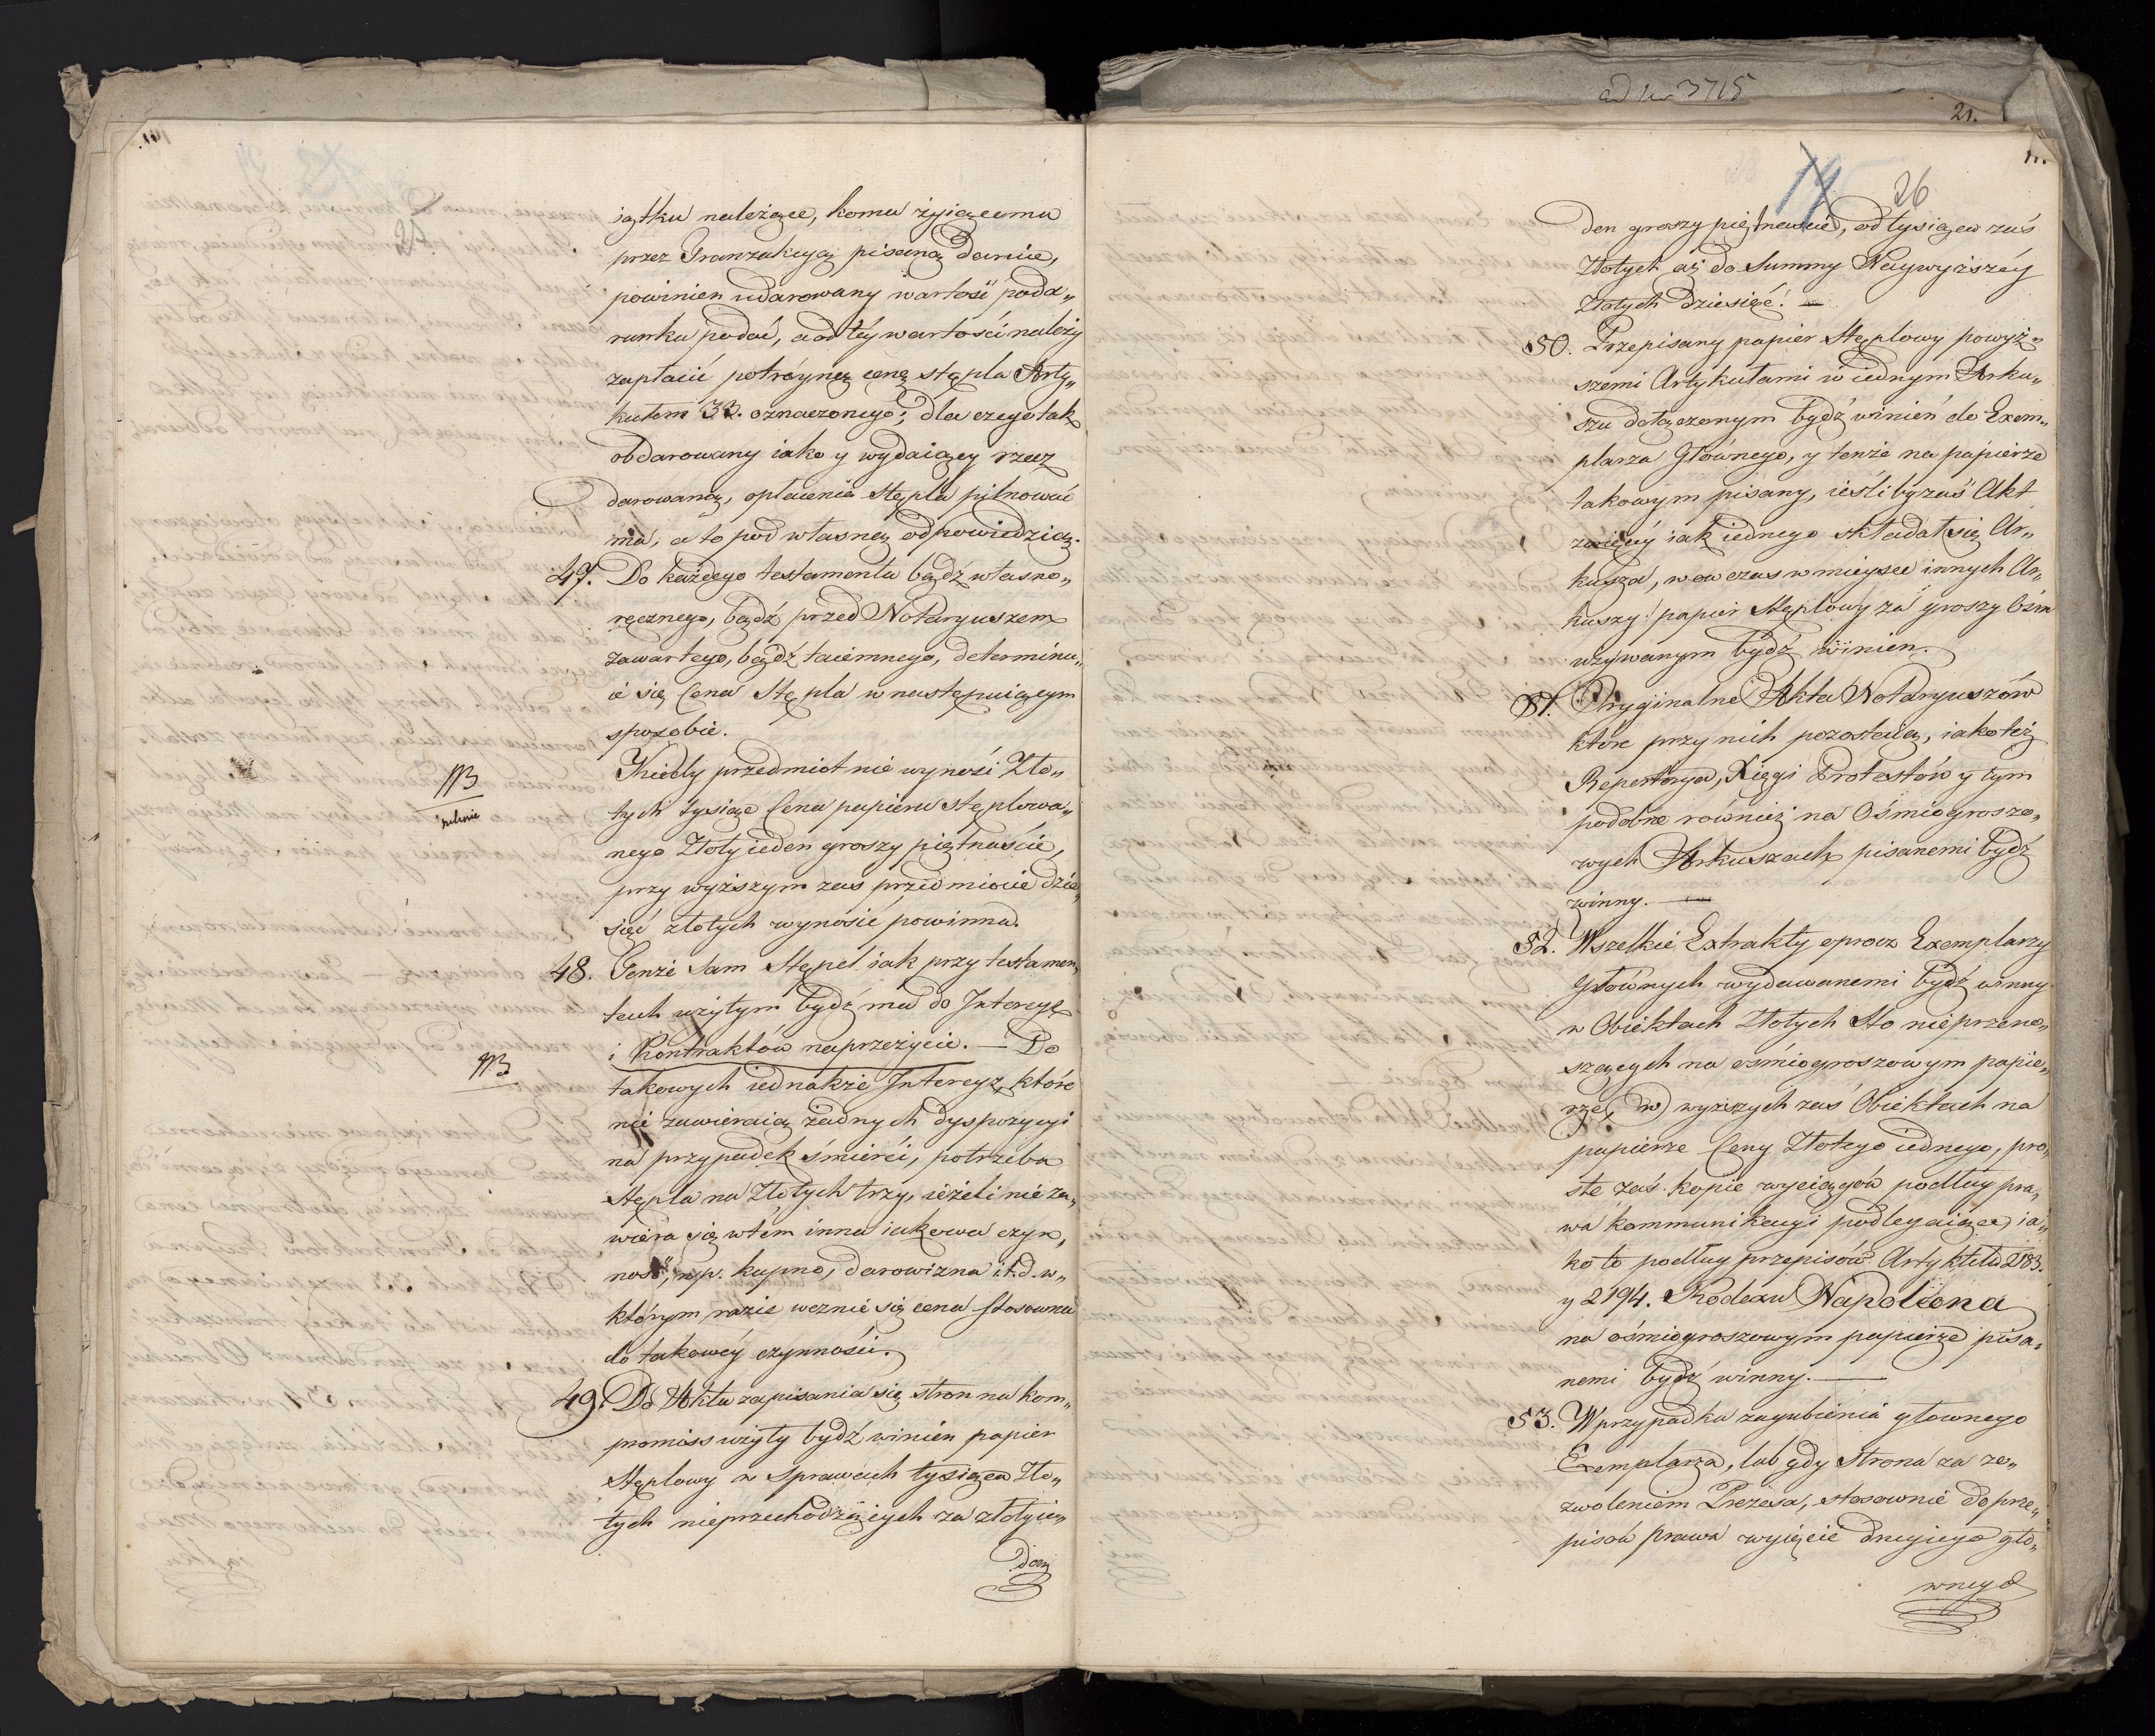 25
iątku należące, komu żyiącemu
przez Tranzakcyą pisaną daruie,
powinien udarowany wartość poda„
runku podać, a od téy wartości należy
zapłacić potróyną cenę stępla Arty„
kułem 33. oznaczonego; dla czego tak
obdarowany iako y wydaiący rzecz
darowaną, opłacenia Stępla pilnować
ma, a to pod własną odpowiedzią.
47. Do każdego testamentu bądź własno„
ręcznego, bądź przed Notaryuszem
zawartego, bądź taiemnego, determinu„
ie się Cena Stępla w następuiącym
sposobie.
NB
Kiedy przedmiot nie wynosi Zło„
tych tysiąc Cena papieru stęplowa„
nego Złoty ieden groszy piętnaście,
przy wyższym zaś przedmiocie dzie„
sięć złotych wynosić powinna.
48. Tenże sam Stępel iak przy testamen„
tach użytym bydź ma do Intercyz
i Kontraktów na przeżycie. — Do
NB
takowych iednakże Intercyz, które
nie zawieraią żadnych dyspozycyi
na przypadek śmierći, potrzeba
Stępla na Złotych trzy, ieżeli nie za„
wiera się w tem inna iakowa czyn„
ność, np. kupno, darowizna i t.d. w„
którym razie weznie się cena stosowna
do takowéy czynności.
49. Do Aktu zapisania się stron na kom„
promiss użyty bydź winien papier
Stęplowy w Sprawach tysiąca Zło„
tych nieprzechodzących za złoty ie„
den
ad Nr 3715
21.
11.
14
26
den groszy piętnaście, od tysiąca zaś
złotych aż do Summy Naywyższéy
złotych dziesięć. —
50. Przepisany papier Stęplowy powyż„
szemi Artykułami w iednym Arku„
szu dołączonym bydź winien do Exem„
plarza Głównego, y tenże na papierze
takowym pisany, ieśliby zaś Akt
więcéy iak iednego składał się Ar„
kusza, wówczas w mieysce innych Ar„
kuszy papier Stęplowy za groszy Ośm
używanym bydź winien.
51. Oryginalne Akta Notaryuszów
które przy nich pozostaią, iako też
Repertorya, Xięgi Protestów y tym
podobne również na Ośmiogroszo„
wych Arkuszach pisanemi bydź
winny. —
52. Wszelkie Extrakty oprocz Exemplarzy
Głównych wydawanemi bydź winny
w Obiektach Złotych Sto nieprzeno„
szących na ośmiogroszowym papie„
rze, w wyższych zaś Obiektach na
papierze Ceny Złotego iednego, pro„
ste zaś kopie wyciągów podług pra„
wa kommunikacyi podlegaiące, ia„
ko to podług przepisów Artykułu 2183.
y 2194. Kodexu Napoleona
na ośmiogroszowym papierze pisa„
nemi bydź winny. —
53. W przypadku zagubienia głownego
Exemplarza, lub gdy Strona za ze„
zwoleniem Prezesa, stosownie do prze„
pisów prawa wyięcie drugiego głó„
wnego